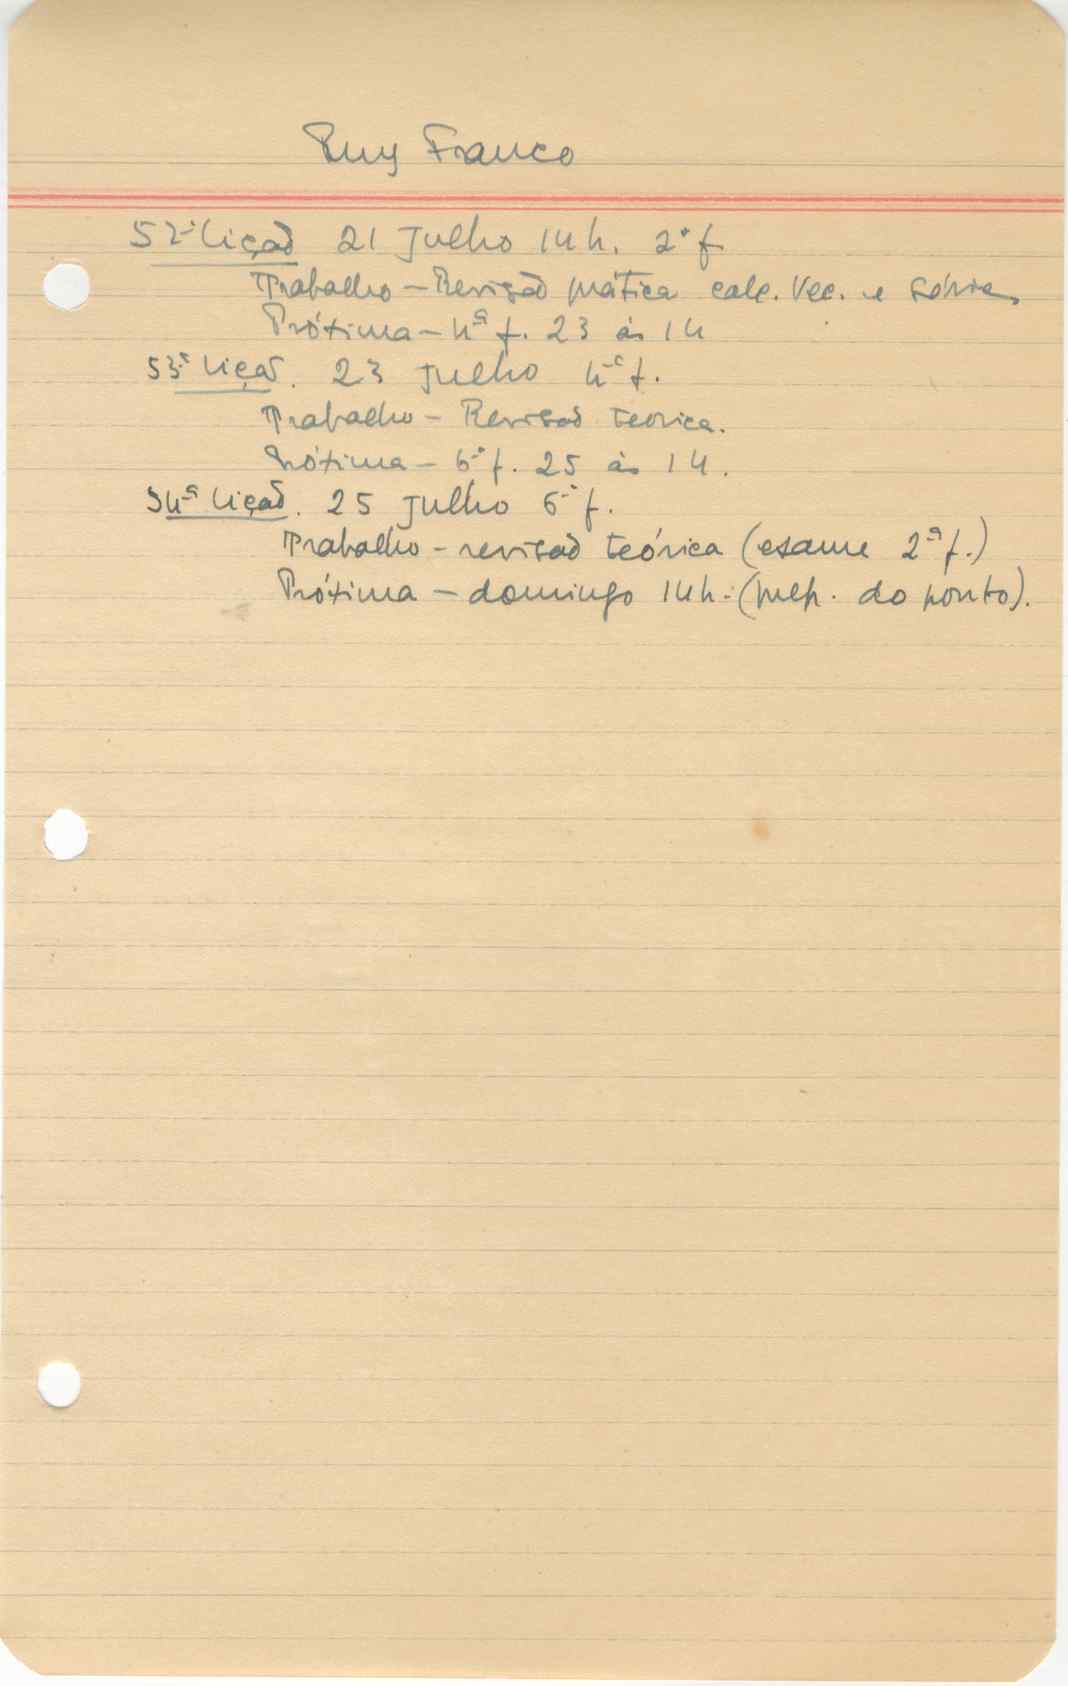 Ruy Franco
52ª Lição 21 Julho 14h. 2ª f.
Trabalho – Revisão prática calc. Vec. e séries
Próxima – 4ª f. 23 às 14
53ª Lição. 23 Julho 4ª f.
Trabalho – Revisão teórica.
Próxima – 6ª f. 25 às 14.
54ª Lição. 25 Julho 6ª f.
Trabalho – revisão teórica (exame 2ª f.)
Próxima – domingo 14h. ( do ponto).